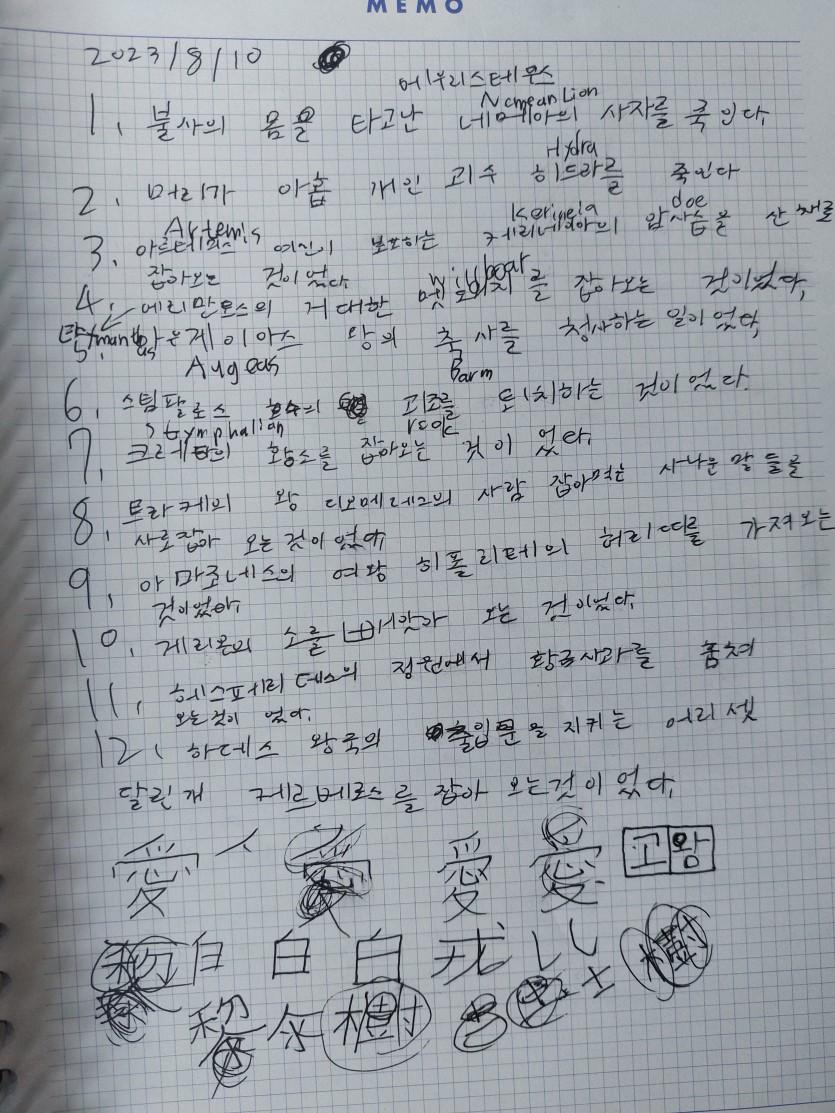 MEMO
2023/8/10
에우리스테우스
Nemean Lion
1. 불사의 몸을 타고난 네메아의 사자를 죽인다.
Hydra
2. 머리가 아홉 개인 괴수 히드라를 죽인다
Artemis Kerineia doe
3. 아르테미스 여신이 보호하는 케리네이아의 암사슴을 산 채로
잡아오는 것이었다.
Wild boar
4. 에리만토스의 거대한 멧돼지를 잡아오는 것이었다.
5. 아우게이아스 왕의 축사를 청사하는 일이었다.
Augeas Barm
6. 스팀팔로스 호수의 괴조를 퇴치하는 것이었다.
Stymphalian rsok
7. 크레타의 황소를 잡아오는 것이었다.
8. 트라케의 왕 디오메데스의 사람 잡아먹는 사나운 말들을
사로잡아 오는것이었다.
9. 아마조네스의 여왕 히폴리테의 허리띠를 가져오는
것이었다.
10. 게리온의 소를 빼앗아 오는 것이었다.
11. 헤스페리데스의 정원에서 황금사과를 훔쳐
오는것이 었다.
12. 하데스 왕국의 출입문을 지키는 머리 셋
달린 개 케르베로스를 잡아 오는것이 었다.
愛 人 愛 愛 고왕
白 白 白 戎